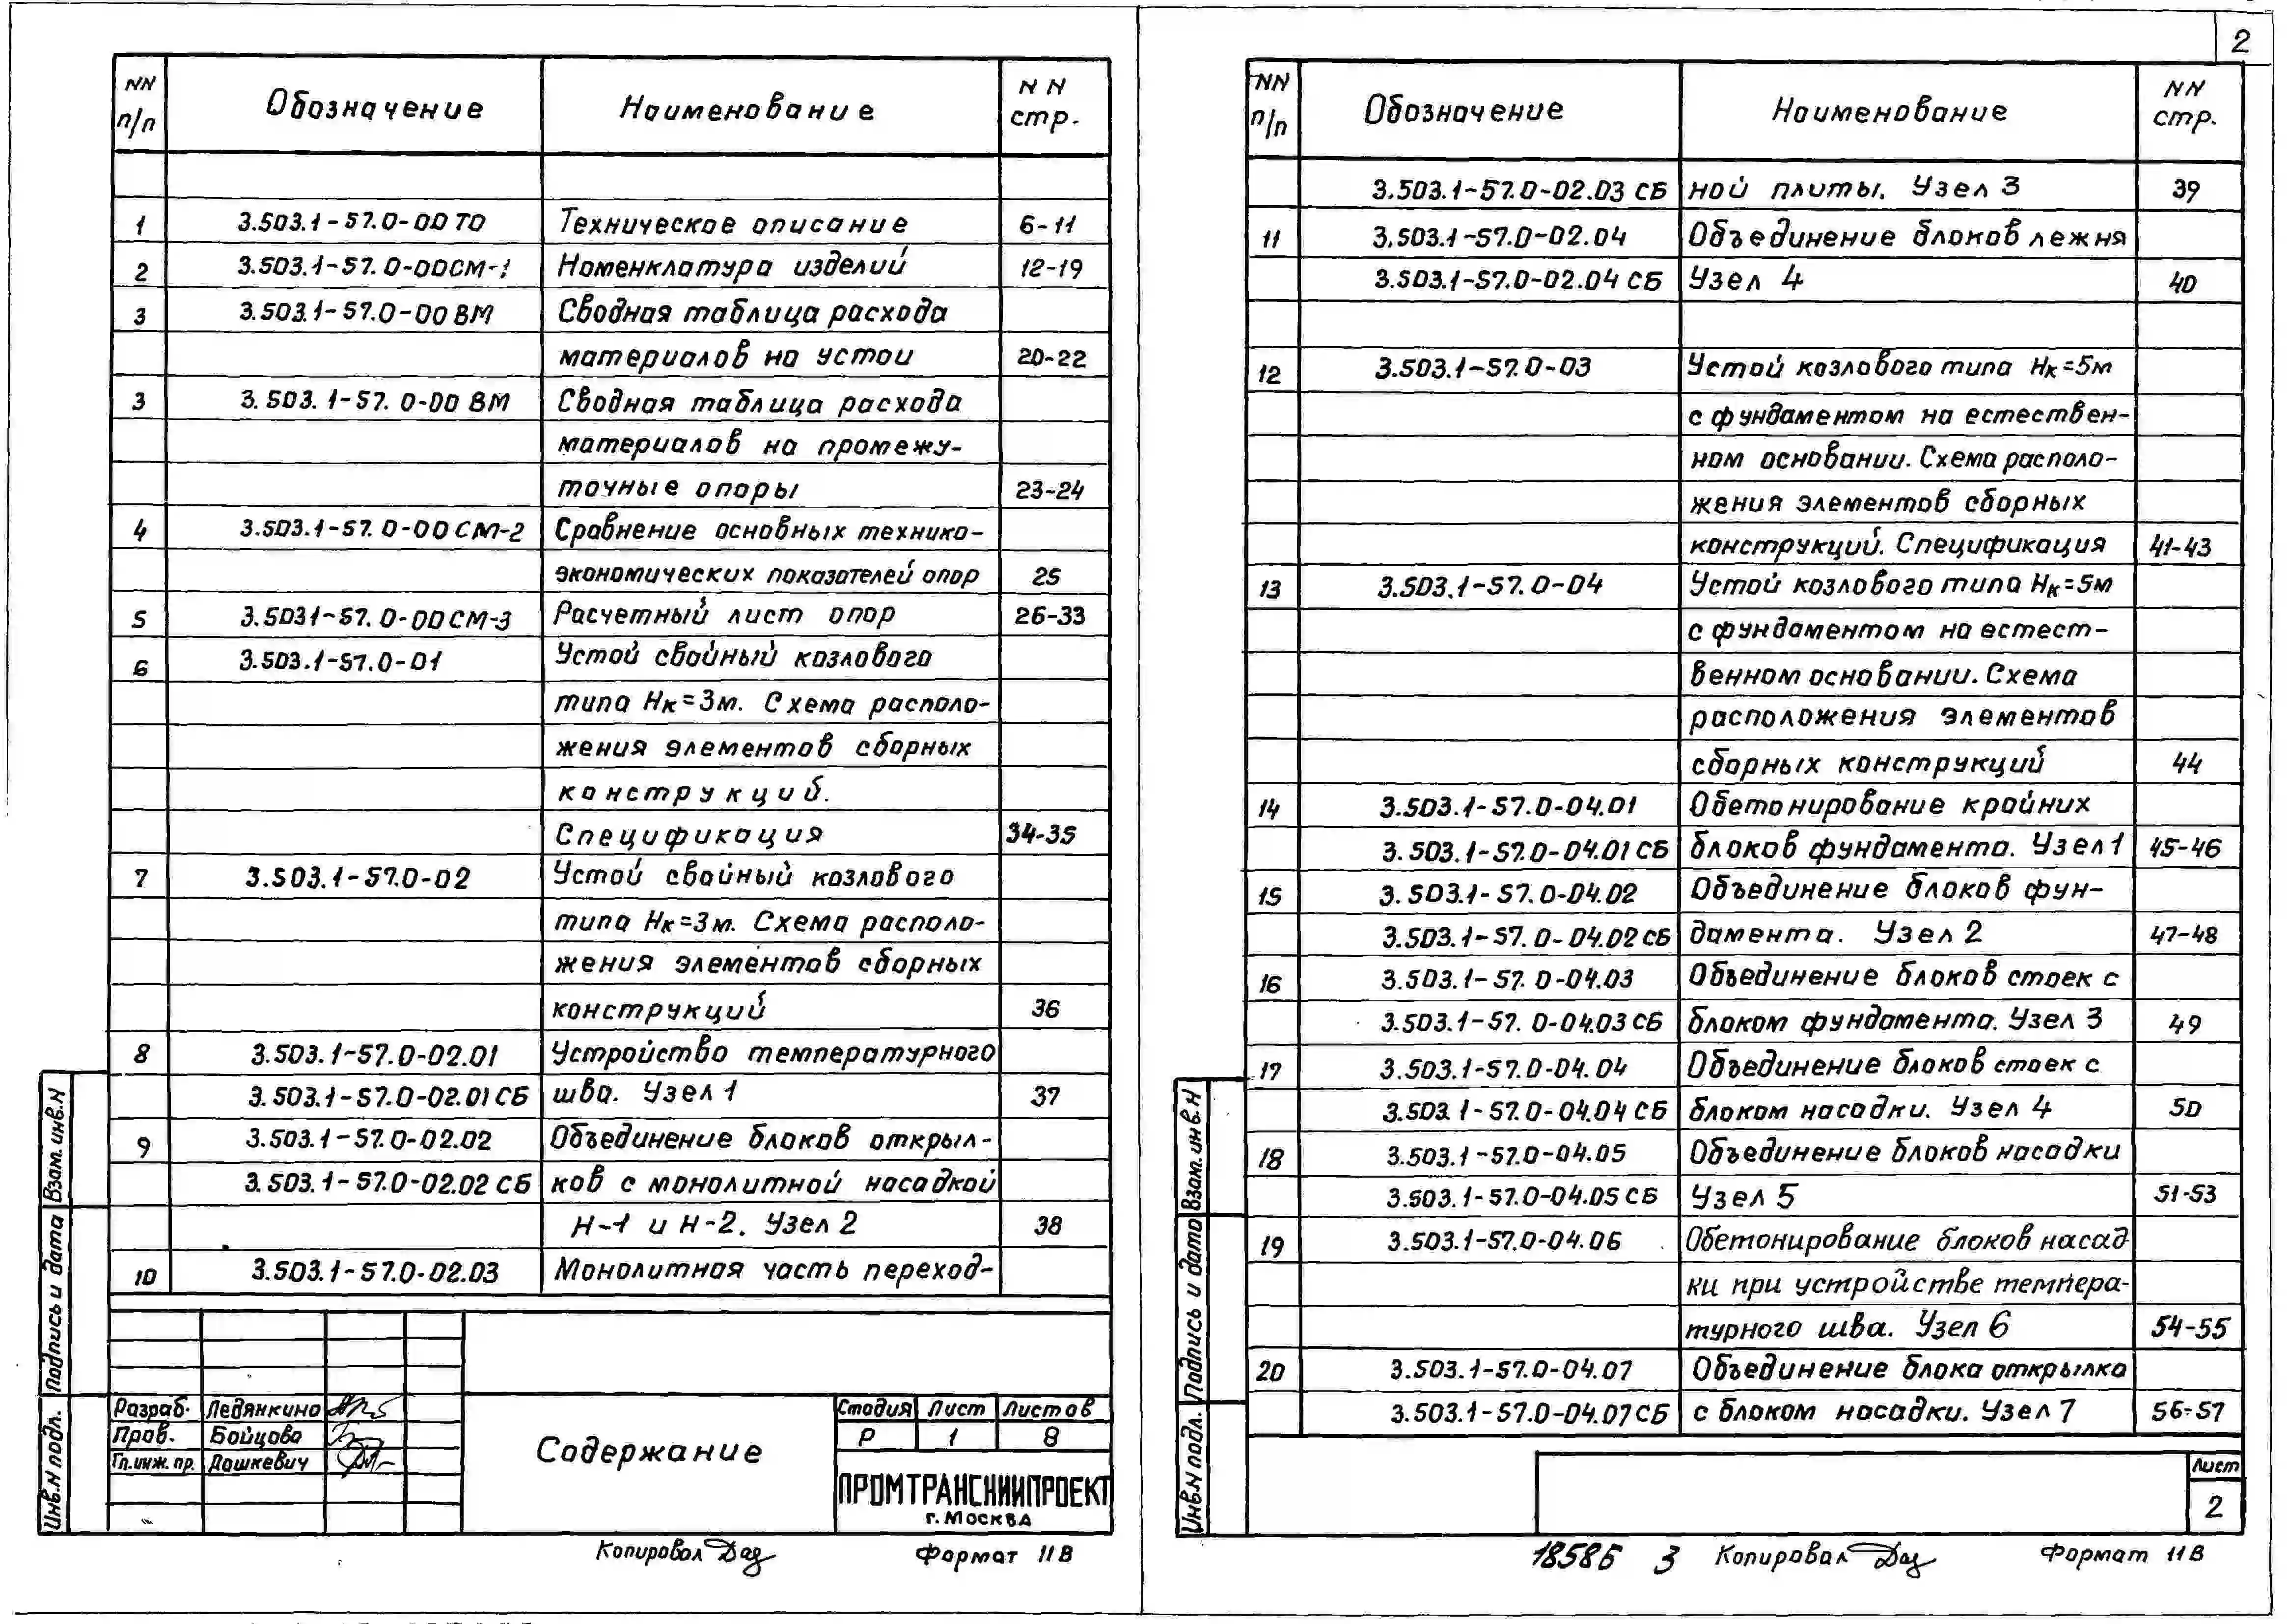 2
NN п/п Обозначение Наименование NN стр.
1 3.503.1-57.0-00 ТО Техническое описание 6-11
2 3.503.1-57.0-00СМ-1 Номенклатура изделий 12-19
3 3.503.1-57.0-00 ВМ Сводная таблица расхода
материалов на устои 20-22
3 3.503.1-57.0-00 ВМ Сводная таблица расхода
материалов на промежу-
точные опоры 23-24
4 3.503.1-57.0-00 СМ-2 Сравнение основных технико-
экономических показателей опор 25
5 3.5031-57.0-00СМ-3 Расчетный лист опор 26-33
6 3.503.1-57.0-01 Устой свайный козлового
типа Нк=3м. Схема располо-
жения элементов сборных
конструкций.
Спецификация 34-35
7 3.503.1-57.0-02 Устой свайный козлового
типа Нк=3м. Схема располо-
жения элементов сборных
конструкций 36
8 3.503.1-57.0-02.01 Устройство температурного
3.503.1-57.0-02.01СБ шва. Узел 1 37
9 3.503.1-57.0-02.02 Объединение блоков открыл-
3.503.1-57.0-02.02 СБ ков с монолитной насадкой
Н-1 и Н-2. Узел 2 38
10 3.503.1-57.0-02.03 Монолитная часть переход-
Разраб. Ледянкина
Пров. Бойцова
Гл.инж.пр. Дашкевич
Содержание
Стадия Лист Листов
Р 1 8
ПРОМТРАНСНИИПРОЕКТ
г. Москва
Инв.N подл. Подпись и дата Взам.инв.N
Копировал Формат 11В
NN п/п Обозначение Наименование NN стр.
3.503.1-57.0-02.03 СБ ной плиты. Узел 3 39
11 3.503.1-57.0-02.04 Объединение блоков лежня
3.503.1-57.0-02.04 СБ Узел 4 40
12 3.503.1-57.0-03 Устой козлового типа Нк=5м
с фундаментом на естествен-
ном основании. Схема располо-
жения элементов сборных
конструкций. Спецификация 41-43
13 3.503.1-57.0-04 Устой козлового типа Нк=5м
с фундаментом на естест-
венном основании. Схема
расположения элементов
сборных конструкций 44
14 3.503.1-57.0-04.01 Обетонирование крайних
3.503.1-57.0-04.01СБ блоков фундамента. Узел 1 45-46
15 3.503.1-57.0-04.02 Объединение блоков фун-
3.503.1-57.0-04.02СБ дамента. Узел 2 47-48
16 3.503.1-57.0-04.03 Объединение блоков стоек с
3.503.1-57.0-04.03СБ блоком фундамента. Узел 3 49
17 3.503.1-57.0-04.04 Объединение блоков стоек с
3.503.1-57.0-04.04 СБ блоком насадки. Узел 4 50
18 3.503.1-57.0-04.05 Объединение блоков насадки
3.503.1-57.0-04.05 СБ Узел 5 51-53
19 3.503.1-57.0-04.06 Обетонирование блоков насад
ки при устройстве темпера-
турного шва. Узел 6 54-55
20 3.503.1-57.0-04.07 Объединение блока открылка
3.503.1-57.0-04.07СБ с блоком насадки. Узел 7 56-57
Лист
2
Инв.N подл. Подпись и дата Взам.инв.N
18585 3 Копировал Формат 11В